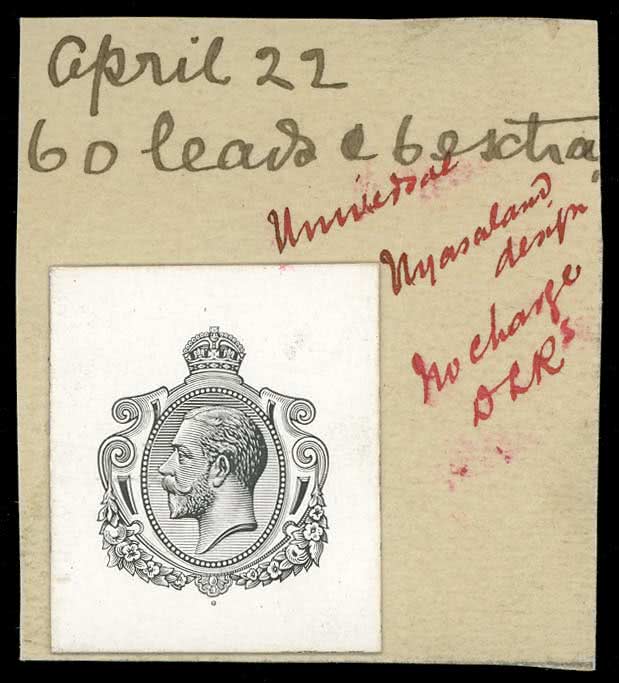 April 22
60 leads & 6 extra
Universal
Nyasaland
design
No charge
DLRs